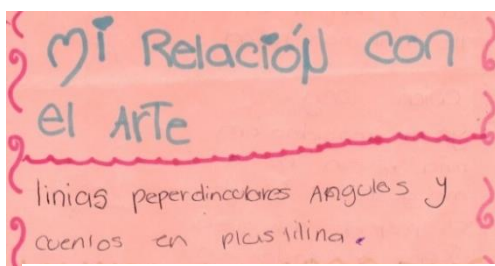 Mi Relación con
el Arte
linias peperdinculares Angulos y
cuentos en plastilina.